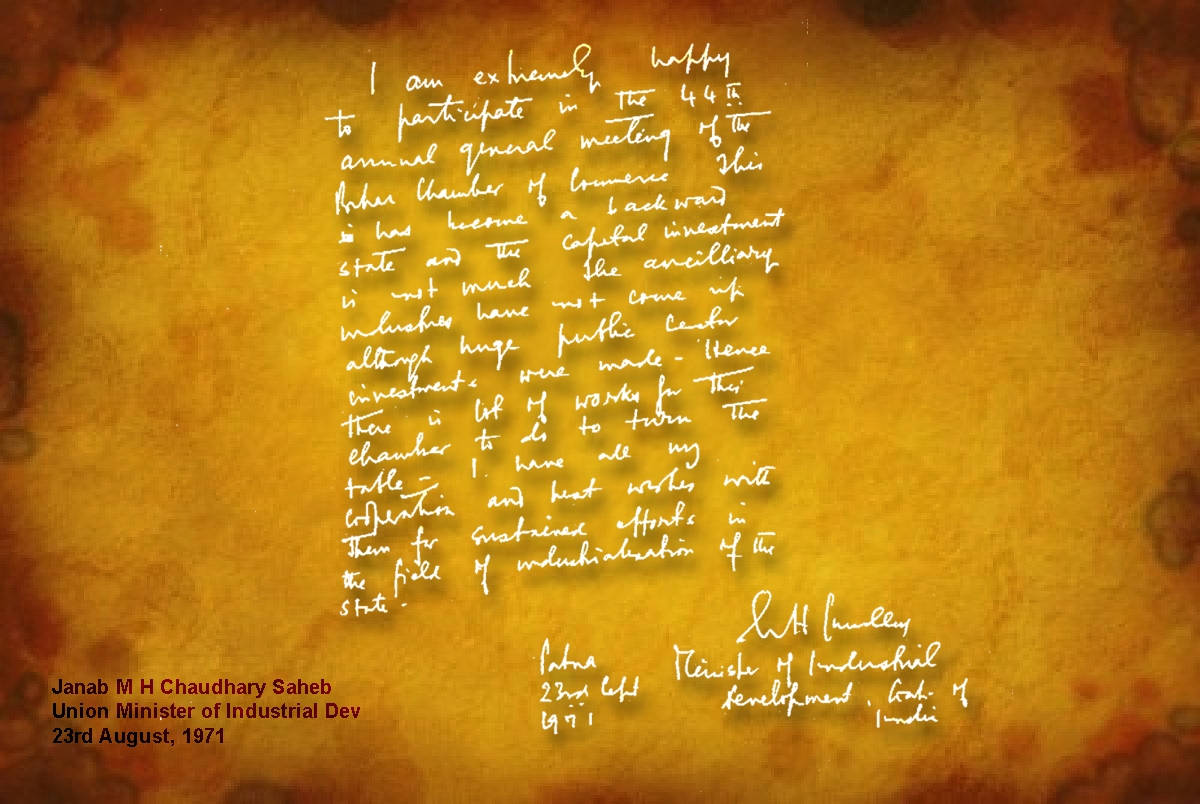 I am extremely happy
to participate in the 44th
annual general meeting of the
Bihar Chamber of Commerce This
is has become a backward
state and the capital investment
is not much The ancilliary
industries have not come up
although huge public Sector
investments were made - Hence
there is lot of works for this
chamber to do to turn the
table - I have all my
cooperation and best wishes with
them for sustained efforts in
the field of industrialisation of the
state -
M H
Patna
Minister of Industrial
23rd Sept
Development, Govt. of
1971
India
Janab M H Chaudhary Saheb
Union Minister of Industrial Dev
23rd August, 1971